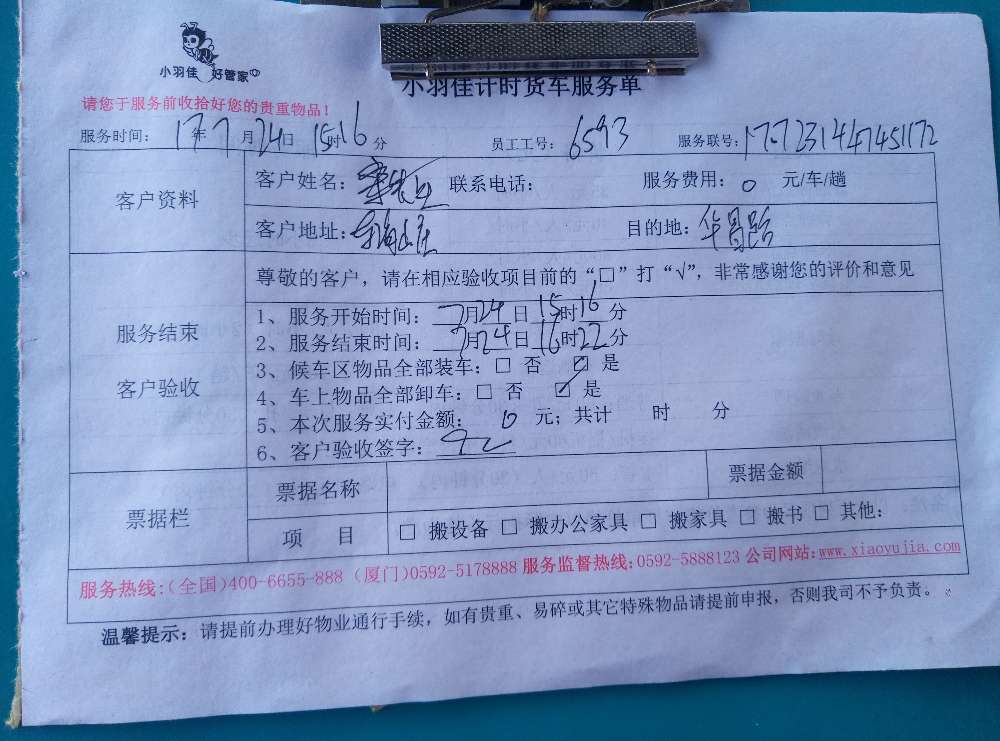 小羽佳 好管家
小羽佳计时货车服务单
请您于服务前收拾好您的贵重物品！
服务时间： 17年7月24日 15时16分 员工工号：6593 服务联号：177231447451172
客户资料
客户姓名： 联系电话： 服务费用：0 元/车/趟
客户地址： 目的地：华昌路
尊敬的客户，请在相应验收项目前的“□”打“√”，非常感谢您的评价和意见
服务结束
客户验收
1、服务开始时间：7月24日15时16分
2、服务结束时间：7月24日16时22分
3、候车区物品全部装车：□ 否 ☑ 是
4、车上物品全部卸车：□ 否 ☑ 是
5、本次服务实付金额： 0 元；共计 时 分
6、客户验收签字：
票据栏
票据名称 票据金额
项 目 □ 搬设备 □ 搬办公家具 □ 搬家具 □ 搬书 □ 其他：
服务热线：(全国)400-6655-888 (厦门)0592-5178888 服务监督热线：0592-5888123 公司网站：www.xiaoyujia.com
温馨提示：请提前办理好物业通行手续，如有贵重、易碎或其它特殊物品请提前申报，否则我司不予负责。